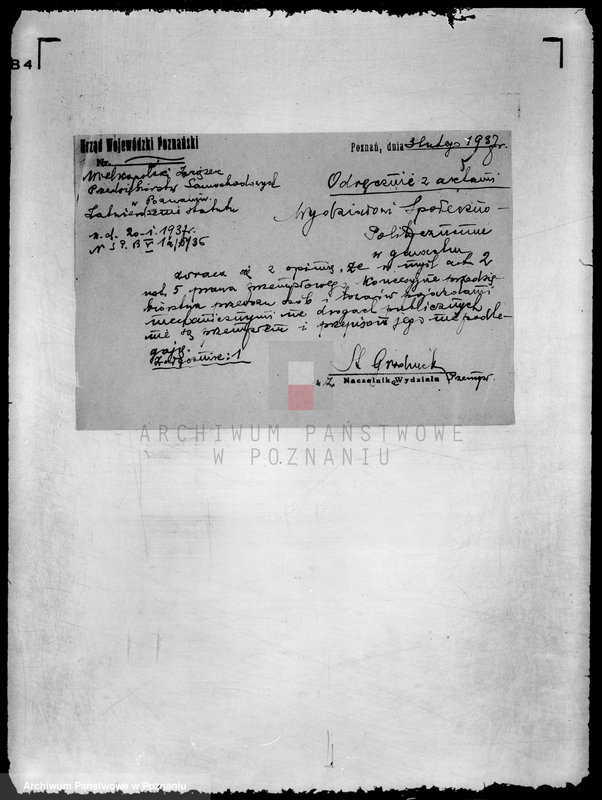 84
Urząd Wojewódzki Poznański
Nr.
Poznań, dnia 3 lutego 1937 r.
Wielkopolski Związek
Przedsiębiorstw Samochodowych
w Poznaniu
Zatwierdzenie statutu
n. d. 20-I-1937r.
N S.P. B V
Odręcznie z aktami
Wydziałowi Społeczno-
Politycznemu
w gmachu
zwraca się z opinią, że w myśl art 2
ust. 5 prawa przemysłowego koncesyjne przedsię-
biorstwa przewozu osób i towarów pojazdami
mechanicznymi na drogach publicznych
nie są przemysłem i przepisom jego nie podle-
gają.
Załączników: 1
w z. Naczelnik Wydziału Przemysł.
ARCHIWUM PAŃSTWOWE
W POZNANIU
Archiwum Państwowe w Poznaniu